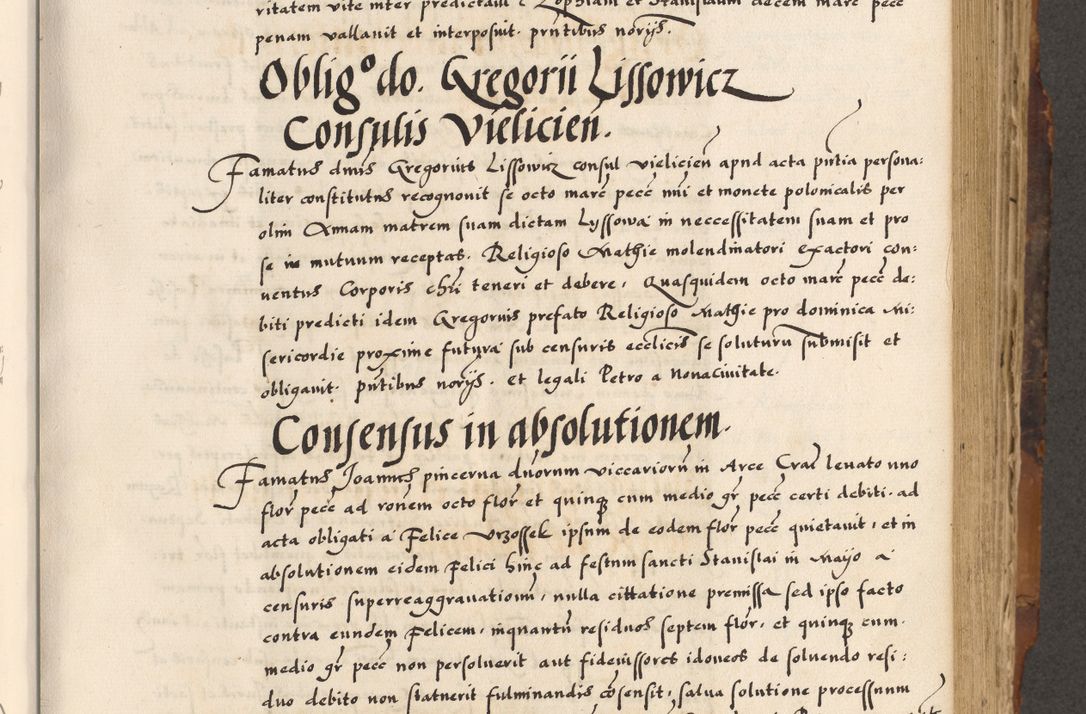 ritatem vite inter predictam Zophiam et Stanislaum decem marc̄ pecc̄
penam vallauit et interposuit. pn̄tibus norijs.
Obligᵒ do. Gregorii Lissowicz
Consulis Vielicien̄.
Famatus dn̄us Gregorius Lissowicz consul vielicien̄ apud acta pn̄tia persona:
liter constitutus recognouit se octo marc̄ pecc̄ nn̄i et monete polonicalis per
olim Annam matrem suam dictam Lyssowa in neccessitatem suam et pro
se in mutuum receptas. Religioso Mathie molendinatori exactori con:
uentus Corporis chr̄i teneri et debere, Quasquidem octo marc̄ pecc̄ de:
biti predicti idem Gregorius prefato Religioso Mathie pro dominica Mi:
sericordie proxime futura sub censuris eccl̄icis se soluturū submisit et
obligauit. pn̄tibus norijs. et legali Petro a Nonaciuitate.
Consensus in absolutionem.
Famatus Joannes pincerna duorum viccariorū in Arce Crac̄ leuato uno
flor̄ pecc̄ ad ron̄em octo flor̄ et quinqꝫ cum medio gr̄ pecc̄ certi debiti. ad
acta obligati a Felice Vrzossek ipsum de eodem flor̄ pecc̄ quietauit, et in
absolutionem eidem Felici hinc ad festum sancti Stanislai in Mayo a
censuris superreaggrauatioum, nulla cittatione premissa sed ipso facto
contra eundem Felicem, inquantū residuos septem flor̄, et quinqꝫ cum
medio gr̄ pecc̄ non persoluerit aut fideiussores idoneos de soluendo resi:
duo debito non statuerit fulminandis cōsensit, salua solutione processuum